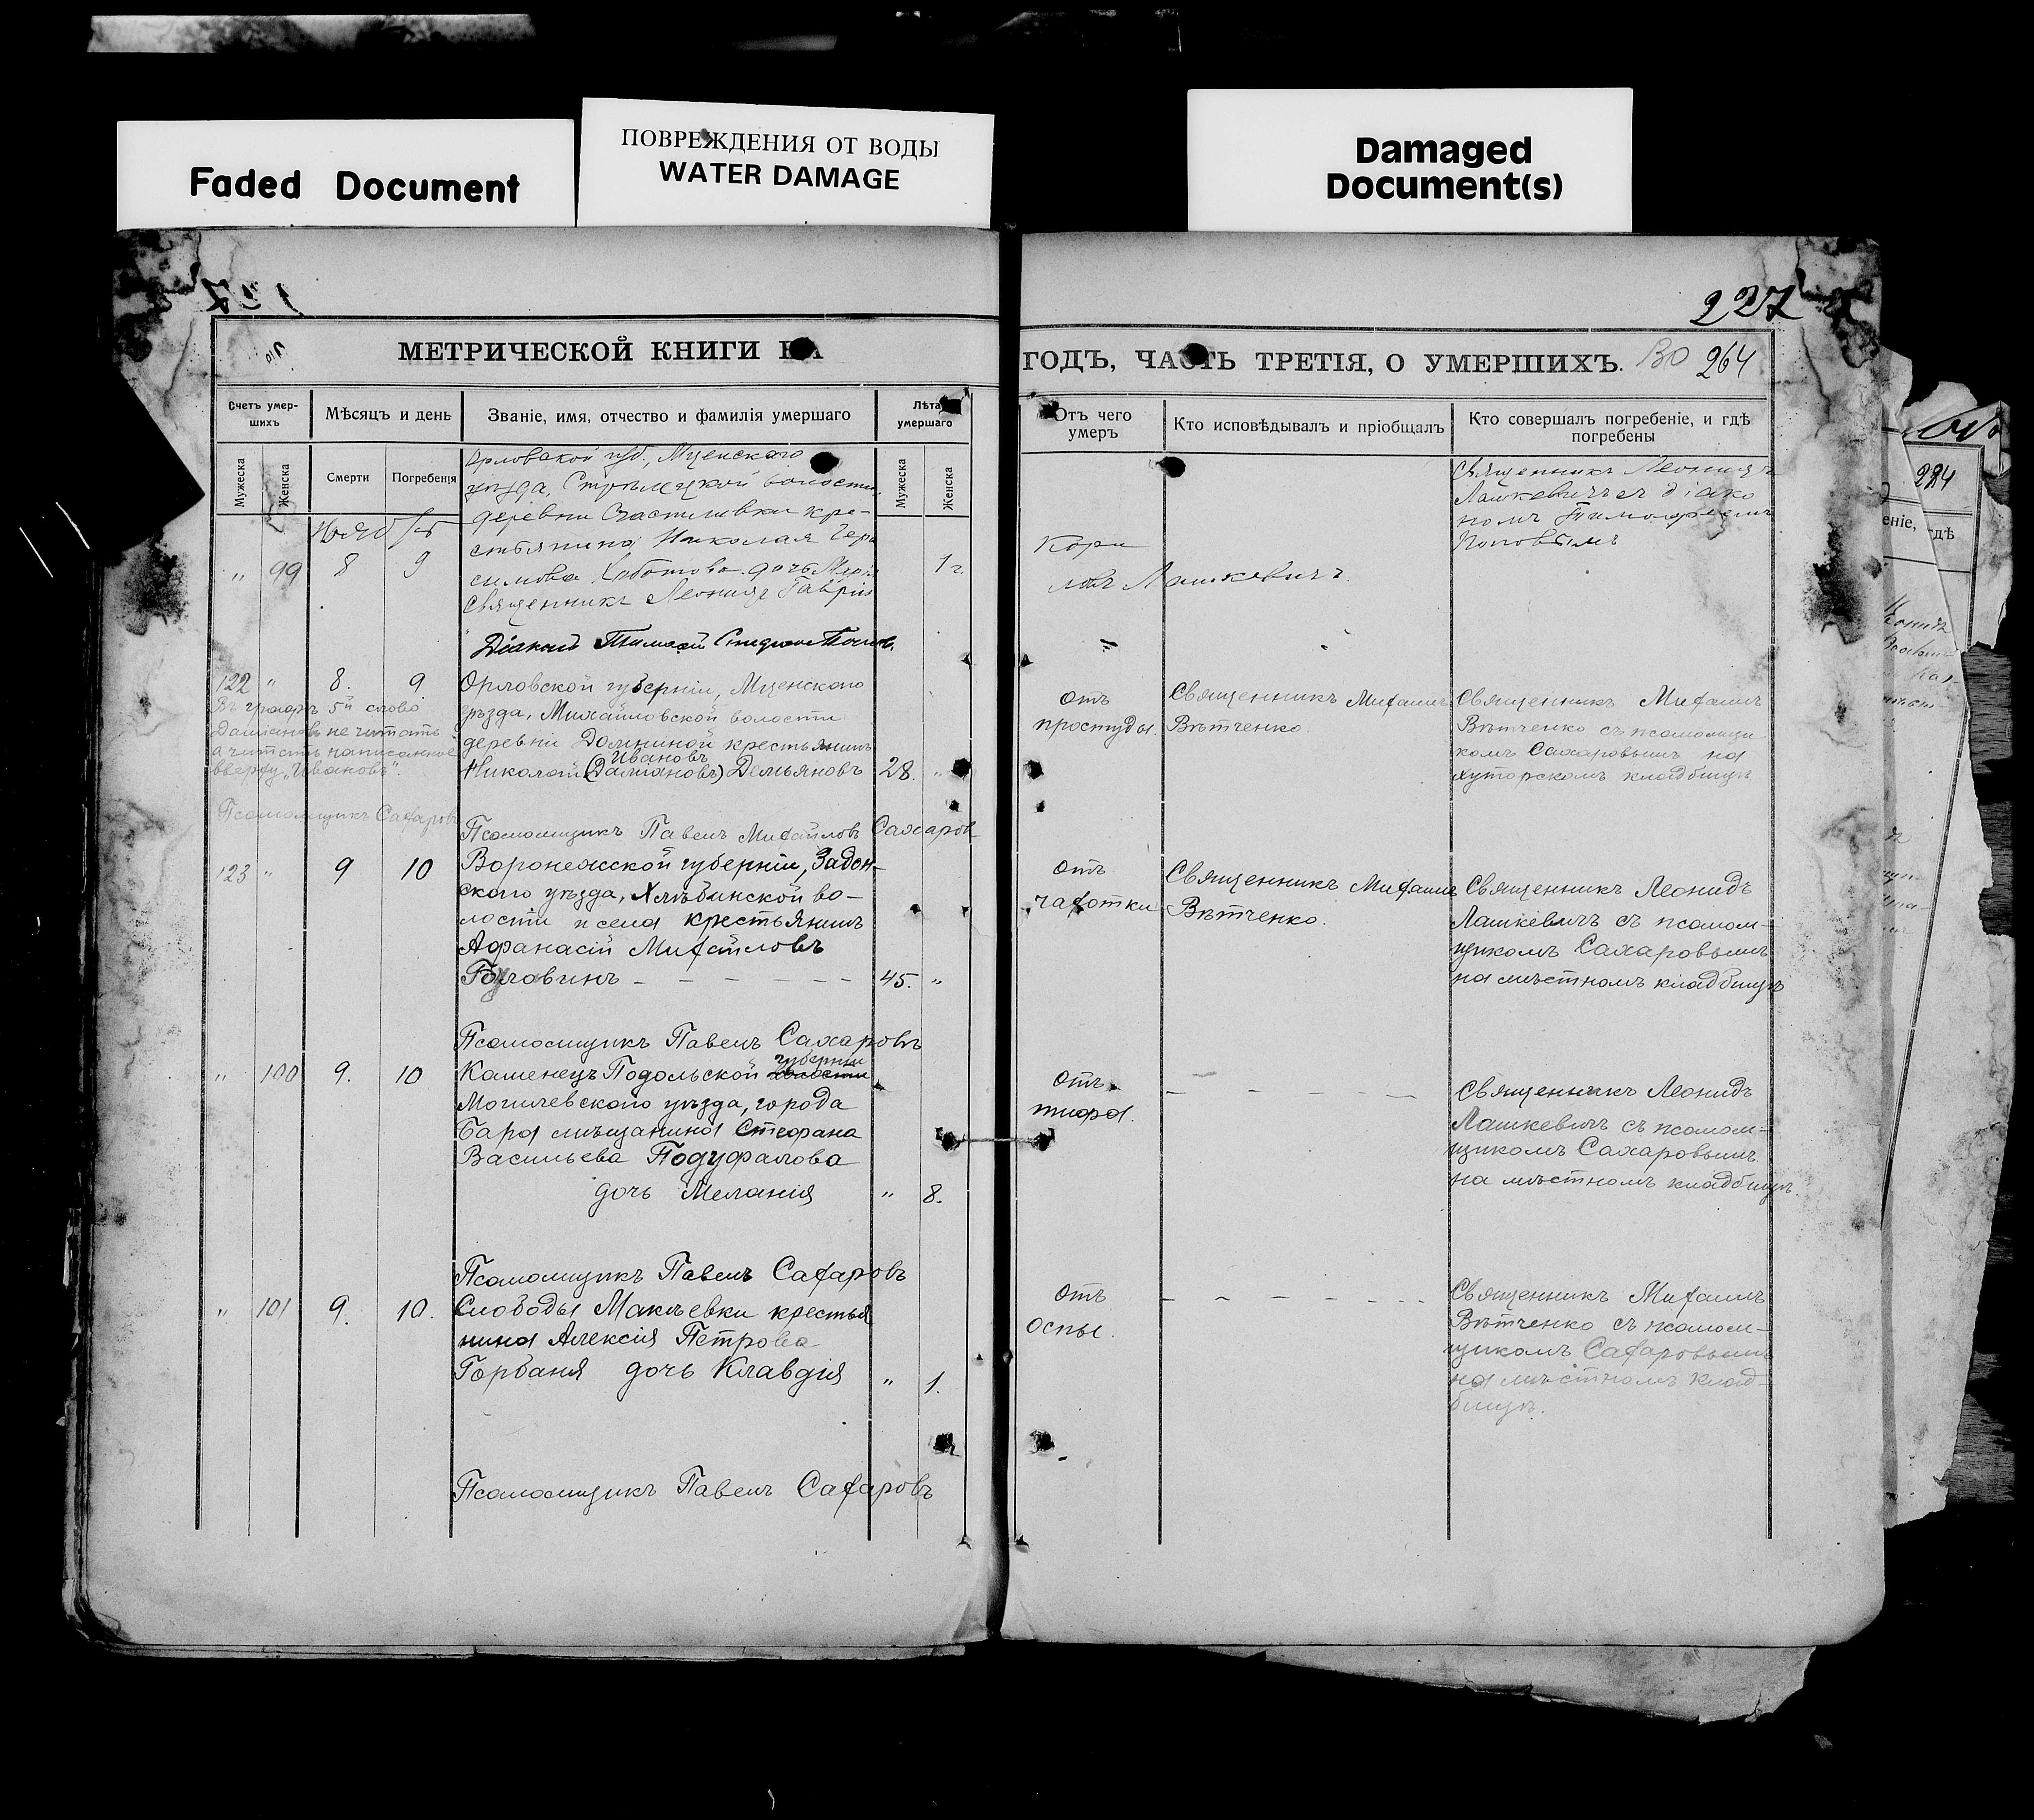 Faded Document
ПОВРЕЖДЕНИЯ ОТ ВОДЫ
WATER DAMAGE
Damaged
Document(s)
227
МЕТРИЧЕСКОЙ КНИГИ НА
ГОДЪ, ЧАСТЬ ТРЕТІЯ, О УМЕРШИХЪ.
264
Счетъ умер-
шихъ
Мѣсяцъ и день
Званіе, имя, отчество и фамилія умершаго
Лѣта
умершаго
Мужеска
Женска
Смерти
Погребенія
Мужеска
Женска
Отъ чего
умеръ
Кто исповѣдывалъ и пріобщалъ
Кто совершалъ погребеніе, и гдѣ
погребены
Орловской губ., Мценскаго
уѣзда, Стрѣлецкой волости,
деревни Счастливки кре-
стьянина Николая Гера
симова дочь Марія
Священникъ Леонидъ Гавріи
Нояб
" 99 8 9
1 г.
Кори
лъ Лашкевичъ.
Священникъ Леонидъ
Лашкевичъ съ діако
номъ Тимофеемъ
Поповымъ
122 " 8. 9.
Орловской губерніи, Мценскаго
уѣзда, Михайловской волости
деревни Домниной крестьянинъ
Ивановъ
Николай (Даміановъ) Демьяновъ 28. "
Въ графѣ 5й слово
Даміановъ не читать
а читать написанное
вверху "Ивановъ".
Псаломщикъ Сахаровъ
Псаломщикъ Павелъ Михайловъ Сахаровъ
Отъ
простуды.
Священникъ Михаилъ
Вѣтченко
Священникъ Михаилъ
Вѣтченко съ псаломщи
комъ Сахаровымъ на
хуторскомъ кладбищѣ
123 " 9 10
Воронежской губерніи, Задон-
скаго уѣзда, Хлѣбинской во-
лости и села крестьянинъ
Афанасій Михайловъ
Головинъ - - - - - - 45. "
Псаломщикъ Павелъ Сахаровъ
Отъ
чахотки
Священникъ Михаилъ
Вѣтченко.
Священникъ Леонидъ
Лашкевичъ съ псалом-
щикомъ Сахаровымъ
на мѣстномъ кладбищѣ
" 100 9. 10
губерніи
Каменецъ Подольской волости
Могилевскаго уѣзда, города
Бара мѣщанина Стефана
Васильева Подуфалова
дочь Меланія " 8.
Псаломщикъ Павелъ Сахаровъ
Отъ
тифа.
Священникъ Леонидъ
Лашкевичъ съ псалом-
щикомъ Сахаровымъ
на мѣстномъ кладбищѣ.
" 101 9. 10.
Слободы Макѣевки крестья
нина Алексія Петрова
Горбаня дочь Клавдія " 1.
Отъ
оспы.
Священникъ Михаилъ
Вѣтченко съ псалом-
щикомъ Сахаровымъ
на мѣстномъ клад-
бищѣ.
Псаломщикъ Павелъ Сахаровъ
284